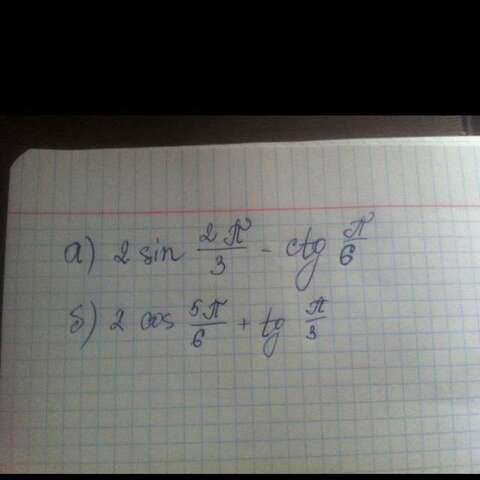 а) 2 sin 2π/3 - ctg π/6
б) 2 cos 5π/6 + tg π/3